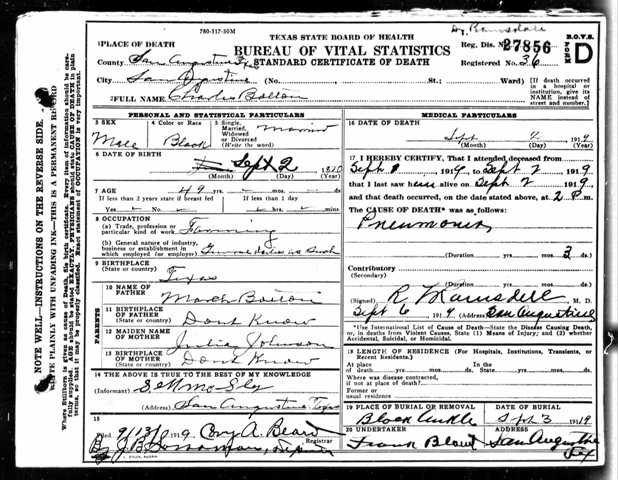 780-517-50M
TEXAS STATE BOARD OF HEALTH
BUREAU OF VITAL STATISTICS
STANDARD CERTIFICATE OF DEATH
Reg. Dis. No. 27856
Registered No. 36
B.O.V.S.
FORM D
1PLACE OF DEATH
County San Augustine
City San Augustine (No. St.; Ward)
[If death occurred in a hospital or institution, give its NAME instead of street and number.]
2FULL NAME Charles Bolton
NOTE WELL—INSTRUCTIONS ON THE REVERSE SIDE.
WRITE PLAINLY WITH UNFADING INK—THIS IS A PERMANENT RECORD
PERSONAL AND STATISTICAL PARTICULARS
3 SEX
Male
4 Color or Race
Black
5 Single, Married, Widowed or Divorced (Write the word)
Married
6 DATE OF BIRTH
Sept 2
(Month) (Day) (Year)
7 AGE 49 yrs. mos. ds.
If less than 2 years state if breast fed
If less than 1 day
8 OCCUPATION
(a) Trade, profession or particular kind of work Farming
(b) General nature of industry, business or establishment in which employed (or employer)
9 BIRTHPLACE
(State or country) Texas
PARENTS
10 NAME OF FATHER
11 BIRTHPLACE OF FATHER
(State or country) Dont Know
12 MAIDEN NAME OF MOTHER Julia Johnson
13 BIRTHPLACE OF MOTHER
(State or country) Dont Know
14 THE ABOVE IS TRUE TO THE BEST OF MY KNOWLEDGE
(Informant)
(Address) San Augustine Texas
15
Filed 9/13/ 1919 Cory A. Beard
Registrar
MEDICAL PARTICULARS
16 DATE OF DEATH
Sept 2, 1919
(Month) (Day) (Year)
17 I HEREBY CERTIFY, That I attended deceased from
Sept 1 1919 to Sept 2 1919
that I last saw him alive on Sept 2 1919,
and that death occurred, on the date stated above, at 2 P m.
The CAUSE OF DEATH* was as follows:
Pneumonia
(Duration yrs. mos. 3 ds.)
Contributory
(Secondary)
(Duration yrs. mos. ds.)
(Signed) R Ramsdell M. D.
Sept 6 1919 (Address) San Augustine
*Use International List of Cause of Death—State the Disease Causing Death, or, in deaths from Violent Causes, State (1) Means of Injury; and (2) whether Accidental, Suicidal, or Homicidal.
18 LENGTH OF RESIDENCE (For Hospitals, Institutions, Transients, or Recent Residents.)
At place of death yrs. mos. ds. In the State yrs. mos. ds.
Where was disease contracted, if not at place of death?
Former or usual residence
19 PLACE OF BURIAL OR REMOVAL
Black Ankle
DATE OF BURIAL
Sept 3 1919
20 UNDERTAKER
Frank Blount
ADDRESS
San Augustine
Tex